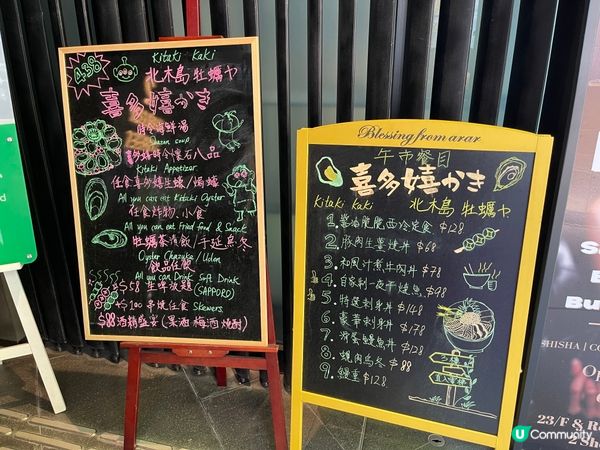 Kitaki Kaki
438
北木島 牡蠣ヤ
喜多嬉かき
時令海鮮湯
Season soup
喜多嬉時令懷石八品
Kitaki Appetizer
任食喜多嬉生蠔/焗蠔
All you can eat Kitaki Oyster
任食炸物.小食
All you can eat Fried food & Snack
牡蠣茶漬飯/干延烏冬
Oyster Chazuke/Udon
飲品任飲
All you can Drink Soft Drink
$58 生啤放題(SAPPORO)
$100 串燒任食 Skewers
$88酒精盛宴(果酒 梅酒 燒酎)
Blessing from arar
午市餐目
喜多嬉かき
Kitaki Kaki 北木島 牡蠣ヤ
1. 定食 $128
2. 豚肉生薑燒丼 $68
3. 和風汁煮牛肉丼 $78
4. 自家制一夜干燒魚 $98
5. 特選刺身丼 $148
6. 豪華刺身丼 $178
7. 滑蛋鰻魚丼 $128
8. 鴨肉烏冬 $88
9. 鰻重 $128
SHISHA | CO
Op
23/F & Ro
2 Sho
U Community